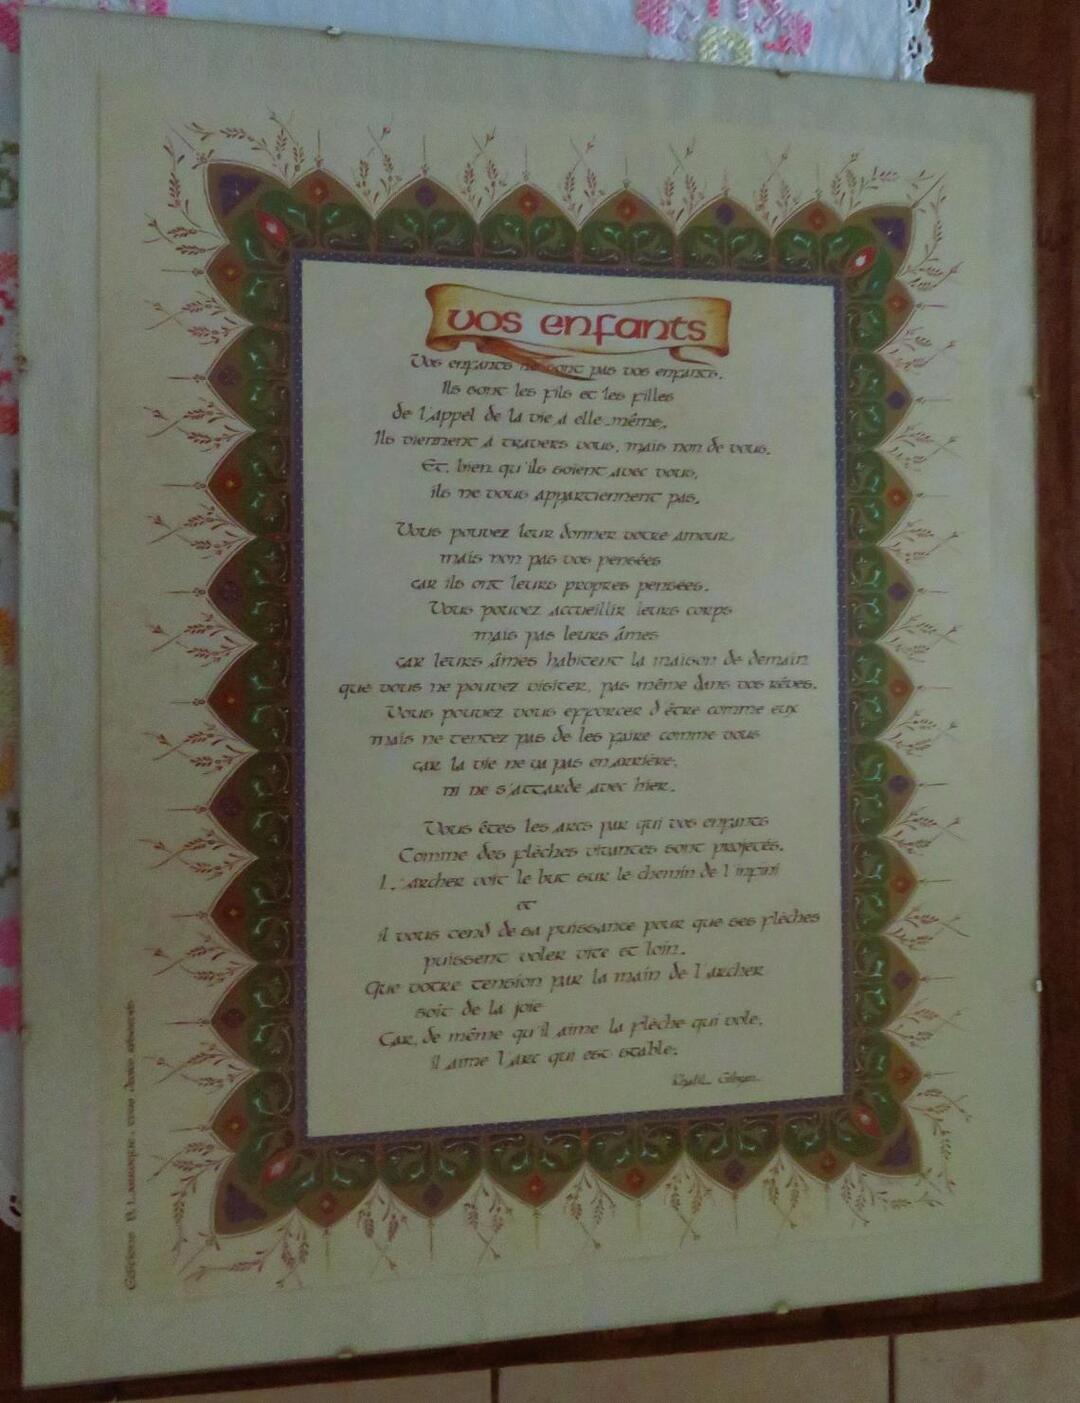 vos enfants
Vos enfants ne sont pas vos enfants.
Ils sont les fils et les filles
de L'appel de la vie a elle-même,
Ils viennent a travers vous, mais non de vous.
Et, bien qu'ils soient avec vous,
ils ne vous appartiennent pas.
Vous pouvez leur donner votre amour
mais non pas vos pensées
car ils ont leurs propres pensées.
Vous pouvez accueillir leurs corps
mais pas leurs âmes
car leurs âmes habitent la maison de demain
que vous ne pouvez visiter, pas même dans vos rêves.
Vous pouvez vous efforcer d'être comme eux
mais ne tentez pas de les faire comme vous
car la vie ne va pas en arrière,
ni ne s'attarde avec hier.
Vous êtes les arcs par qui vos enfants
Comme des flèches vivantes sont projetés.
L'archer voit le but sur le chemin de l'infini
et
il vous tend de sa puissance pour que ses flèches
puissent voler vite et loin.
Que votre tension par la main de l'archer
soit de la joie
Car, de même qu'il aime la flèche qui vole,
il aime l'arc qui est stable.
Khalil Gibran
Editions B. Larroque. tous droits réservés